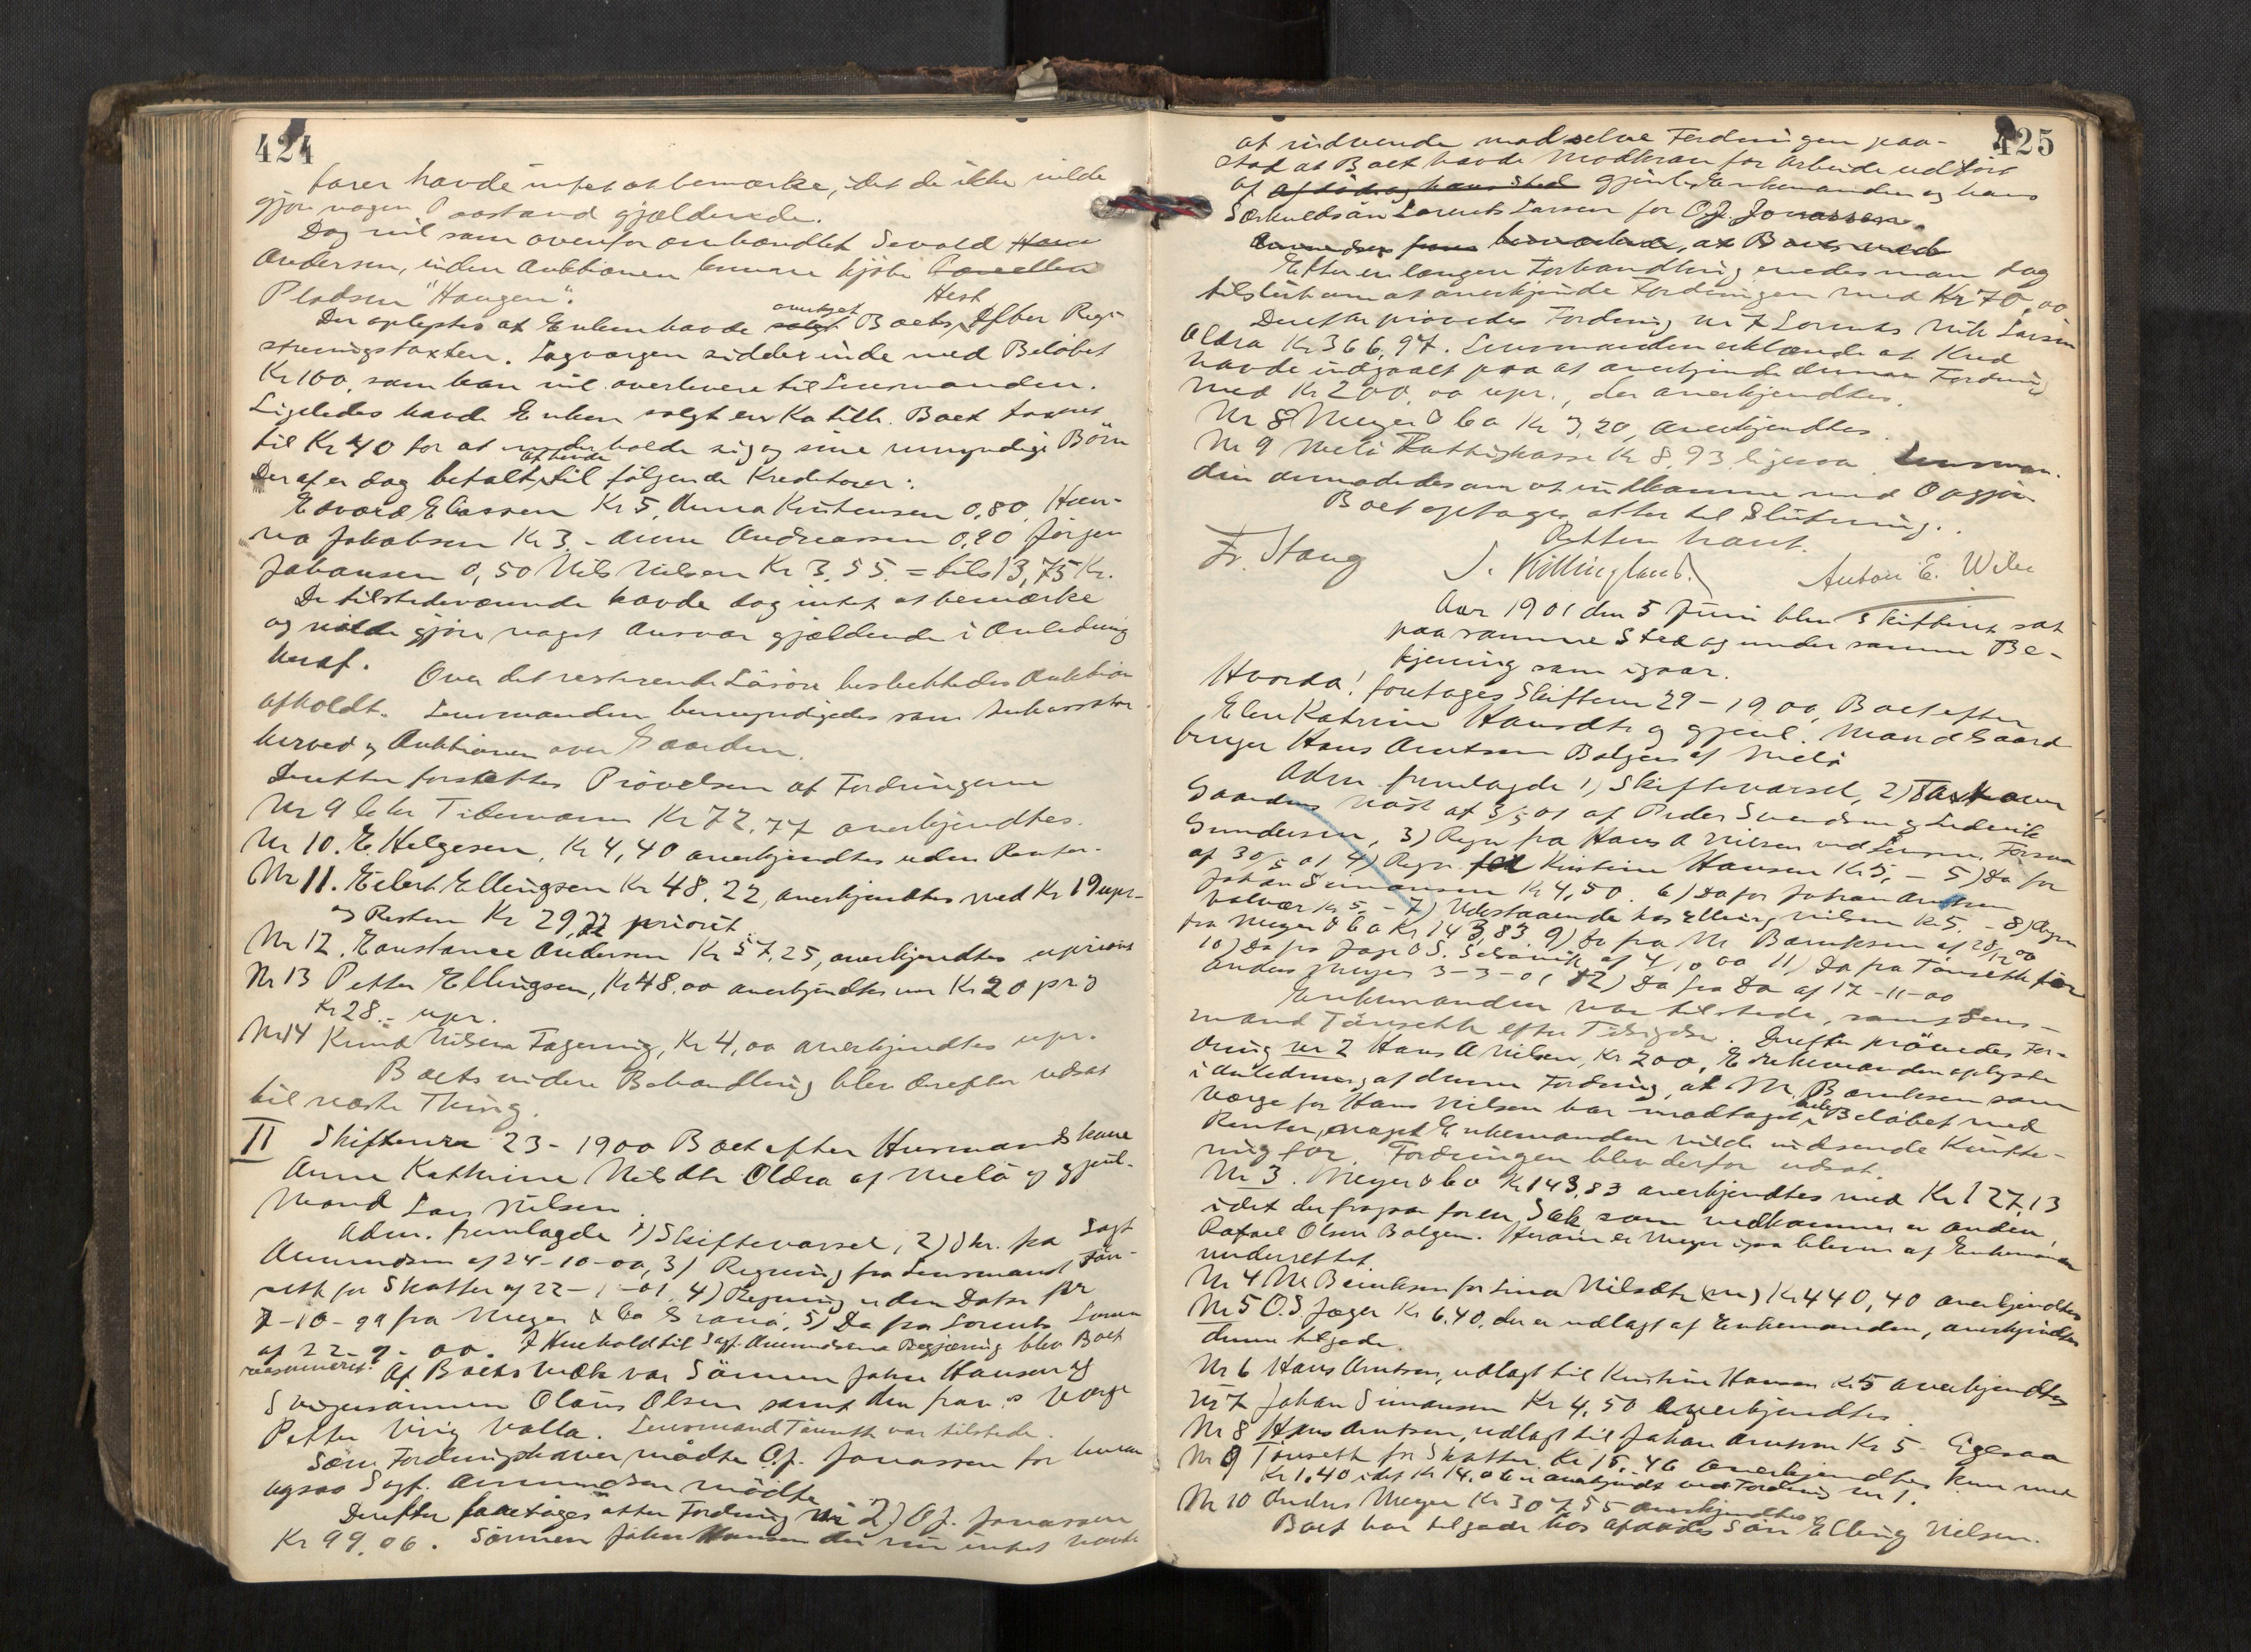 424
farer havde intet at bemærke, idet de ikke vilde
gjøre nogen Paastand gjældende.
Dog vil som ovenfor omhandlet Sevald
Andersen, inden Auktionen kunne kjøbe
Pladsen "Haugen".
Der oplystes at Enken havde overtaget Boets Hest efter Regi-
streringstaxten. Lagværgen sidder inde med Beløbet
Kr 100, som han vil overlevere til Lensmanden.
Ligeledes havde Enken solgt en Ko tilh. Boet taxeret
til Kr 40 for at underholde sig og sine umyndige Børn
Deraf er dog betalt af hende til følgende Kreditorer:
Edvard Eliassen Kr 5, Anna Kristensen 0,80, Han-
na Jakobsen Kr 3.- Anne Andreassen 0,90 Jørgen
Johansen 0,50 Nils Nilsen Kr 3,55. = tils 13,75 Kr.
De tilstedeværende havde dog intet at bemærke
og vilde gjøre noget Ansvar gjældende i Anledning
heraf. Over det resterende Løsøre besluttedes Auktion
afholdt. Lensmanden bemyndigedes som Inkassator
herved og Auktionen over Gaarden.
Derefter fortsattes Prøvelsen af Fordringerne
Nr 9 Chr Tidemann Kr 72,77 anerkjendtes.
Nr 10. E Helgesen, Kr 4,40 anerkjendtes uden Renter.
Nr 11. Eilert Ellingsen Kr 48.22, anerkjendtes med Kr 19 upr.
og Resten Kr 29,22 priorit.
Nr 12. Constance Andersen Kr 57.25, anerkjendtes uprior
Nr 13 Petter Ellingsen, Kr 48.00 anerkjendtes Kr 20 pr og
Kr 28.- upr.
Nr 14 Knud Nilsen Fagervig, Kr 4,00 anerkjendtes upr.
Boets videre Behandling blev derefter udsat
til næste Thing.
II Skiftenr 23-1900 Boet efter Husmandskone
Anne Kathrine Nilsdtr Oldra af Melø og gjenl.
Mand Lars Nilsen.
Adm. fremlagde 1) Skiftevarsel, 2) Skr. fra Sagf
Amundsen af 24-10-00, 3) Regning fra Lensmand Tøn-
seth for Skatter af 22-1-01. 4) Regning uden Dato
7-10-99 fra Meyer & Co 5) Do fra Lorents Larsen
af 22-9-00. I Henhold til Sagf. Amundsens Begjæring blev Boet
reassumeret. Af Boets Vedk var Sønnen Johan Hansen og
Svigersønnen Olaus Olsen samt den frav.s Værge
Petter Valla. Lensmand Tønseth var tilstede.
Som Fordringshaver mødte O.J. Jonassen for hvem
ogsaa Sagf. Amundsen mødte
Derefter foretages atter Fordring Nr 2) O.J. Jonassen
Kr 99.06. Sønnen Johan Hansen der nu intet havde
425
at indvende mod selve Fordringen paa-
stod at Boet havde Modkrav for Arbeide udført
af gjenlev. Enkemanden og hans
Særkuldsøn Lorents Larsen for O.J. Jonassen.
Efter en længere Forhandling enedes man dog
tilslut om at anerkjende Fordringen med Kr 70,00
Derefter prøvedes Fordring nr 7 Lorents Nik Larsen
Oldra Kr 366,97. Lensmanden erklærede at Kred
havde indgaaet paa at anerkjende denne Fordring
med Kr 200,00 upr., der anerkjendtes.
Nr 8 Meyer & Co Kr 3,20, anerkjendtes.
Nr 9 Melø Fattigkasse Kr 8,93 ligesaa. Lensman-
den anmodedes om at indkomme med Opgjør
Boet optages atter til Slutning.
Retten hævet.
Fr. Stang J. Killingland. Anton E. Wiker
Aar 1901 den 5 Juni blev Skifteret sat
paa samme Sted og under samme Be-
tjening som igaar.
Hvorda! foretages Skiftenr 29-1900, Boet efter
Elen Katrine Hansdtr og gjenl. Mand Gaard-
bruger Hans Arntsen Bolgen af Melø
Adm. fremlagde 1) Skiftevarsel, 2) Taxt over
Gaardens af 3/5 01 af Peder Svendsen og Ludvik
Gundersen, 3) Regn fra Hans A Nilsen ved Lensm. Forsaa
af 30/5 01 4) Regn. for Kristine Hansen Kr 5,- 5) Do for
Johan Simonsen Kr 4,50. 6) Do for Johan Arntsen
Valvær Kr 5.- 7) Udestaaende hos Elling Nilsen Kr 5.- 8) Regn
fra Meyer & Co Kr 143,83 9) Do fra M. Benriksen af 28/12 00
10) Do fra Jæger O S. Selsøvik af 4/10 00 11) Do fra Tønseth for
Anders Meyer 3-3-01 12) Do fra Do af 17-11-00
Enkemanden var tilstede, samt Lens-
mand Tønseth efter Tilsigelse. Derefter prøvedes For-
dring nr 2 Hans A Nilsen, Kr 200, Enkemanden oplyste
i Anledning af denne Fordring, at M. Benriksen som
Værge for Hans Nilsen har modtaget Beløbet med
Renter, noget Enkemanden vilde indsende Kvitte-
ring for. Fordringen blev derfor udsat.
Nr 3. Meyer & Co Kr 143,83 anerkjendtes med Kr 127,13
idet der fragaar for en Sæk som vedkommer en anden,
Rafael Olsen Bolgen. Herom er Meyer ogsaa bleven af Enkemanden
underrettet
Nr 4 M Benriksen for Lina Nilsdtr (um) Kr 440,40 anerkjendtes
Nr 5 O.S Jæger Kr 6,40, der er udlagt af Enkemanden, anerkjendtes
denne tilgode.
Nr 6 Hans Arntsen, udlagt til Kristine Hansen Kr 5 anerkjendtes
Nr 7 Johan Simonsen Kr 4,50 Anerkjendtes.
Nr 8 Hans Arntsen, udlagt til Johan Arntsen Kr 5 - Ligesaa
Nr 9 Tønseth for Skatter Kr 15,46 anerkjendtes kun med
Kr 1,40 idet Kr 14.06 er anerkjendt ved Fordring nr 1.
Nr 10 Anders Meyer Kr 307,55 anerkjendtes
Boet har tilgode hos afdødes Søn Elling Nilsen.